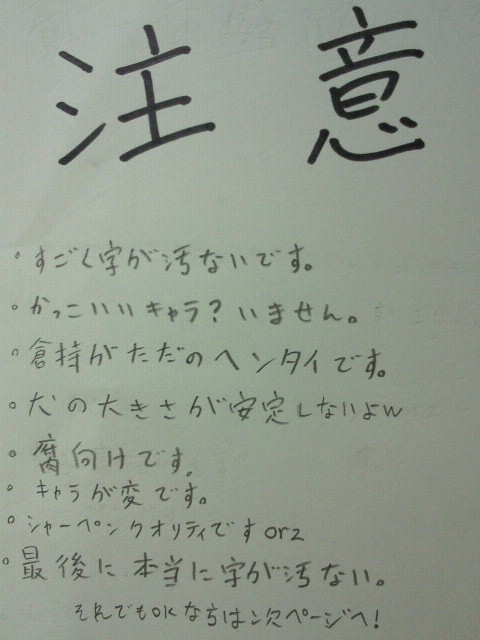 注意
・すごく字が汚ないです。
・かっこいいキャラ?いません。
・倉持がただのヘンタイです。
・犬の大きさが安定しないよw
・腐向けです。
・キャラが変です。
・シャーペンクオリティですorz
・最後に本当に字が汚ない。
それでもOKな方は次ページへ!